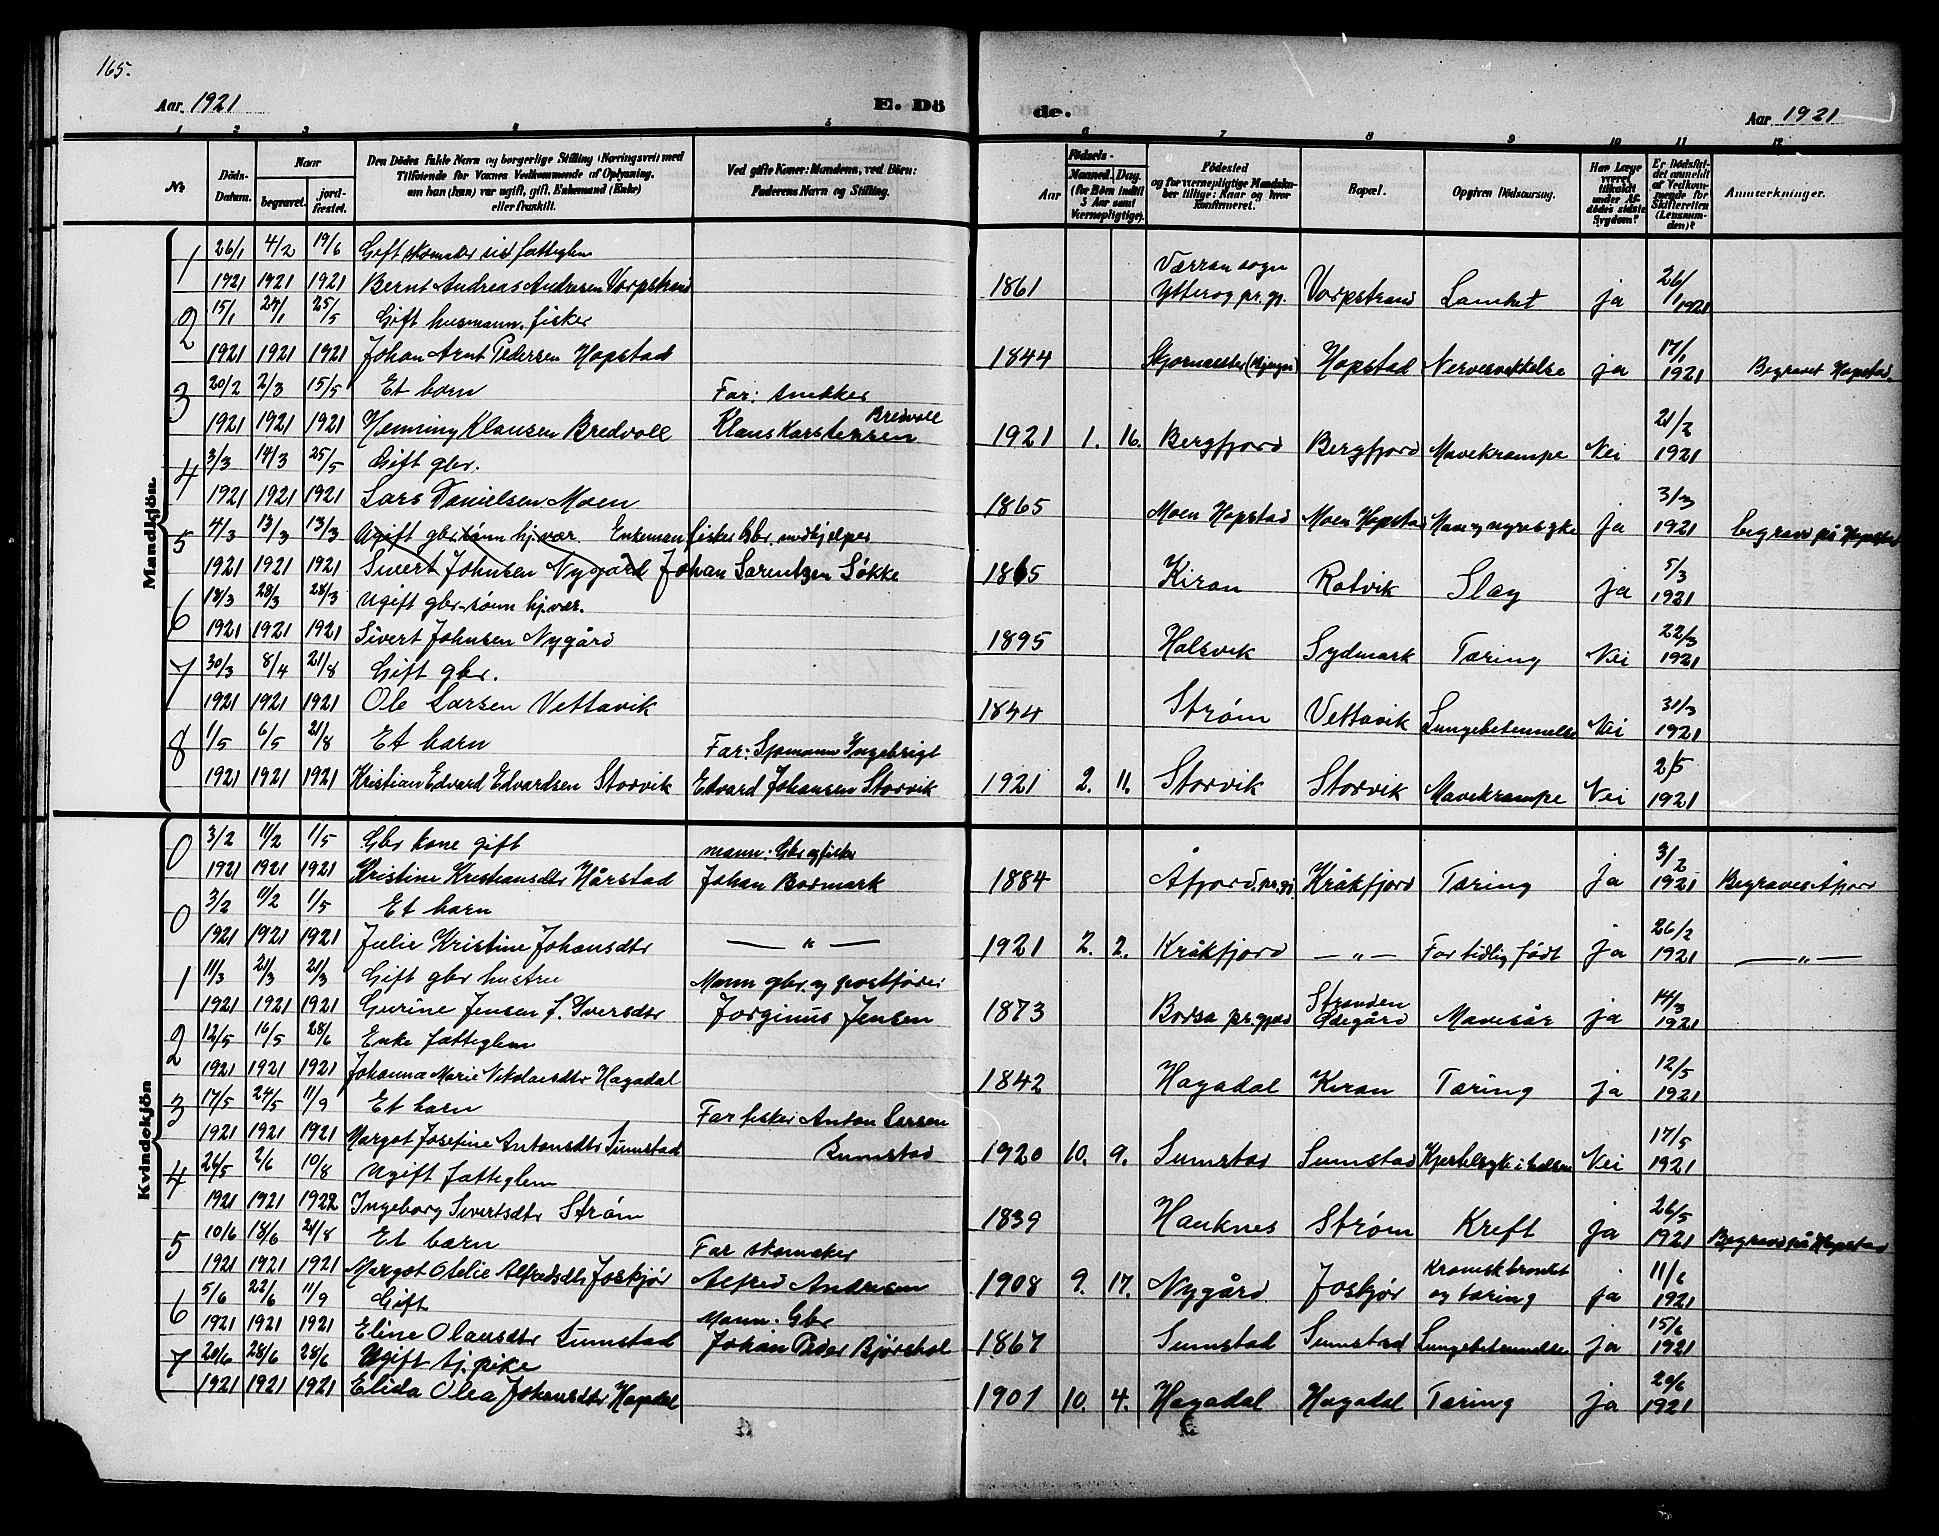 165.
Aar. 1921 E. Dö de. Aar 1921
1 2 3 4 5 6 7 8 9 10 11 12
№ Döds-Datum. Naar begravet. jordfæstet. Den Dödes fulde Navn og borgerlige Stilling (Næringsvei) med Tilföiende for Voxnes Vedkommende af Oplysning, om han (hun) var ugift, gift, Enkemand (Enke) eller fraskilt. Ved gifte Koner: Mandens, ved Börn: Faderens Navn og Stilling. Födsels- Aar Maaned. Dag. (for Börn indtil 5 Aar samt Værnepligtige). Födested og for værnepligtige Mandskaber tillige: Naar og hvor konfirmeret. Bopæl. Opgiven Dödsaarsag. Har Læge været tilkaldt under Afdödes sidste Sygdom? Er Dödsfaldet anmeldt af Vedkommende for Skifteretten (Lensmanden)? Anmærkninger.
Mandkjön.
1 26/1 4/2 19/6 Gift skomaker fattiglem Værran sogn 26/1
1921 1921 1921 Bernt Andreas Andresen Vorpstrand 1861 Ytterøy pr.gj. Vorpstrand Lamhet ja 1921
2 15/1 27/1 25/5 Gift husmann. fisker
1921 1921 1921 Johan Arnt Pedersen Hopstad 1844 Hopstad ja 17/1 1921 Begravet Hopstad.
3 20/2 2/3 15/5 Et barn Far: snekker
1921 1921 1921 Henning Klausen Bredvoll Klaus Karstensen Bredvoll 1921 1. 16. Bergfjord Bergfjord Mavekrampe Nei 21/2 1921
4 3/3 14/3 25/5 Gift gbr.
1921 1921 1921 Lars Danielsen Moen 1865 Moen Hopstad Moen Hopstad ja 3/3 1921 begravd på Hopstad
5 4/3 13/3 13/3 Ugift gbr sønn hj. vær. Enkeman fisker Gbr. medhjelper
1921 1921 1921 Sivert Johnsen Nygård Johan Sarentzen Søkke 1865 Kiran Rotvik Slag ja 5/3 1921
6 18/3 28/3 28/3 Ugift gbr-sønn hj. vær.
1921 1921 1921 Sivert Johnsen Nygård 1895 Halsvik Sydmark Tæring Nei 22/3 1921
7 30/3 8/4 21/8 Gift gbr.
1921 1921 1921 Ole Larsen Vettavik 1844 Strøm Vettavik Lungebetennelse Nei 31/3 1921
8 1/5 6/5 21/8 Et barn Far: Sjømann Ingebrigt
1921 1921 1921 Kristian Edvard Edvardsen Storvik Edvard Johansen Storvik 1921 2. 11. Storvik Storvik Mavekrampe Nei 2/5 1921
Kvindekjön
0 3/2 11/2 1/5 Gbr kone gift mann: Gbr og fisker
1921 1921 1921 Kristine Kristiansdtr Hårstad Johan Bormark 1884 Åfjord pr.gj. Kråkfjord Tæring ja 3/2 1921 Begraves Åfjord
0 3/2 11/2 1/5 Et barn
1921 1921 1921 Julie Kristine Johansdtr — „ — 1921 2. 2. Kråkfjord — „ — For tidlig født ja 26/2 1921 — „ —
1 11/3 21/3 21/3 Gift gbr hustru Mann gbr. og postfører
1921 1921 1921 Gurine Jensen f. Iversdtr Jørginus Jensen 1873 Borsa pr.gjeld Stranden Ødegård Mavesår ja 14/3 1921
2 12/5 16/5 28/6 Enke fattiglem
1921 1921 1921 Johanna Marie Nikolaisdtr Hagadal 1842 Hagadal Kiran Tæring ja 12/5 1921
3 17/5 27/5 11/9 Et barn Far fisker Anton Larsen
1921 1921 1921 Margot Josefine Antonsdtr Sumstad Sumstad 1920 10. 9. Sumstad Sumstad Kjertelsyke i halsen Nei 17/5 1921
4 26/5 2/6 10/8 Ugift Fattiglem
1921 1921 1922 Ingeborg Sivertsdtr Strøm 1839 Hauknes Strøm Kreft ja 26/5 1921 Begravd på Hopstad
5 10/6 18/6 21/8 Et barn Far skomaker
1921 1921 1921 Margot Otelie Alfredsdtr Joskjør Alfred Andresen 1908 9. 17. Nygård Joskjør Kronisk bronkit og tæring ja 11/6 1921
6 5/6 22/6 11/9 Gift Mann: Gbr
1921 1921 1921 Eline Olausdtr Sumstad Johan Peder Bjørshol 1867 Sumstad Sumstad Lungebetennelse ja 15/6 1921
7 20/6 28/6 28/6 Ugift tj. pike
1921 1921 1921 Elida Olea Johansdtr Hagadal 1901 10. 4. Hagadal Hagadal Tæring ja 20/6 1921